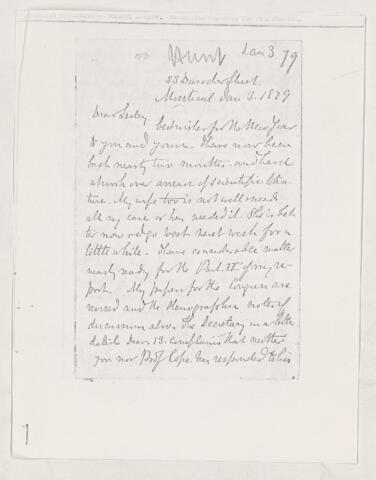 Hunt Jan 3 79
Montreal Jan 3. 1879
Dear Lesley,
best wishes for the New Year
to you and yours. I have now been
back nearly two months and hard
at work over arrears of scientific litera-
ture. My wife too is not well & needs
all my care or has needed it. She is bet-
ter now & I go west next week for a
little while. I have considerable matter
nearly ready for the Part II of my re-
port. My papers for the Congress are
revised and the stenographic notes of
discussions also. The Secretary in a letter
dated Decr. 13. complains that neither
you nor Prof Cope has responded to his